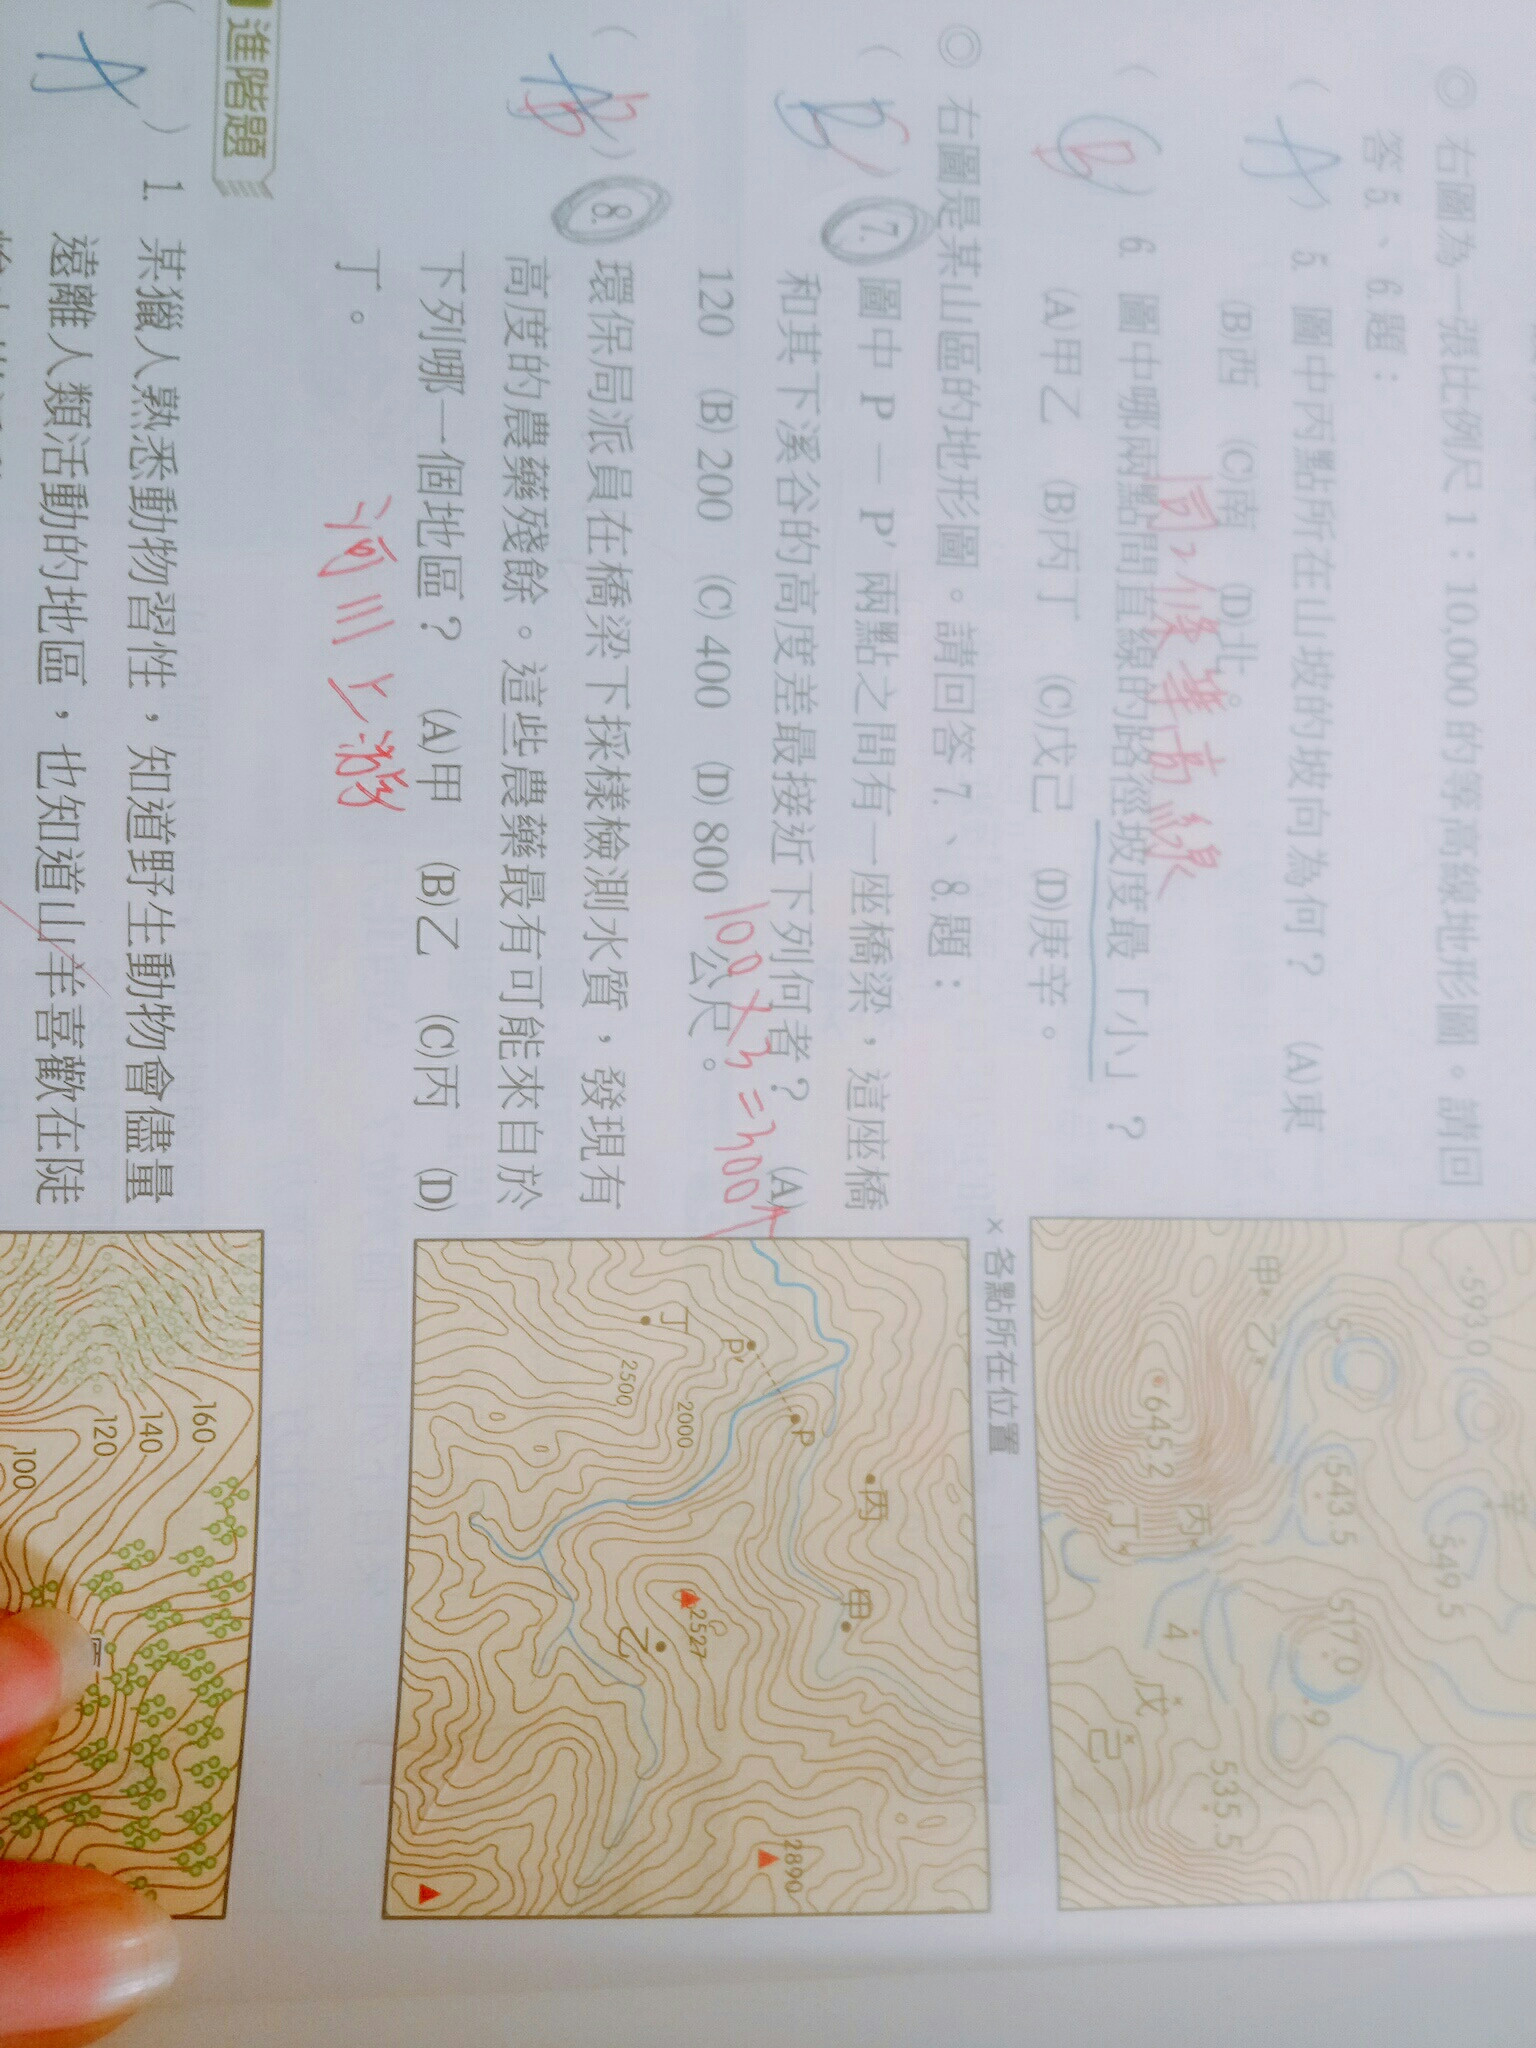 ◎ 右圖為一張比例尺 1：10,000 的等高線地形圖。請回
答 5.、6.題：
( A ) 5. 圖中丙點所在山坡的坡向為何？ (A)東
(B)西 (C)南 (D)北。
( B ) 6. 圖中哪兩點間直線的路徑坡度最「小」？
同一條等高線
(A)甲乙 (B)丙丁 (C)戊己 (D)庚辛。
593.0
辛
549.5
5
543.5
517.0
9
甲
乙
645.2
丙
丁
4
戊
己
535.5
× 各點所在位置
◎ 右圖是某山區的地形圖。請回答 7.、8.題：
( B ) 7. 圖中 P － P′ 兩點之間有一座橋梁，這座橋
和其下溪谷的高度差最接近下列何者？ (A)
120 (B) 200 (C) 400 (D) 800 公尺。
100×3=300
( B ) 8. 環保局派員在橋梁下採樣檢測水質，發現有
高度的農藥殘餘。這些農藥最有可能來自於
下列哪一個地區？ (A)甲 (B)乙 (C)丙 (D)
丁。
河川上游
丙
甲
P
P′
丁
2500
2000
2527
乙
2890
進階題
( A ) 1. 某獵人熟悉動物習性，知道野生動物會儘量
遠離人類活動的地區，也知道山羊喜歡在陡
160
140
120
100